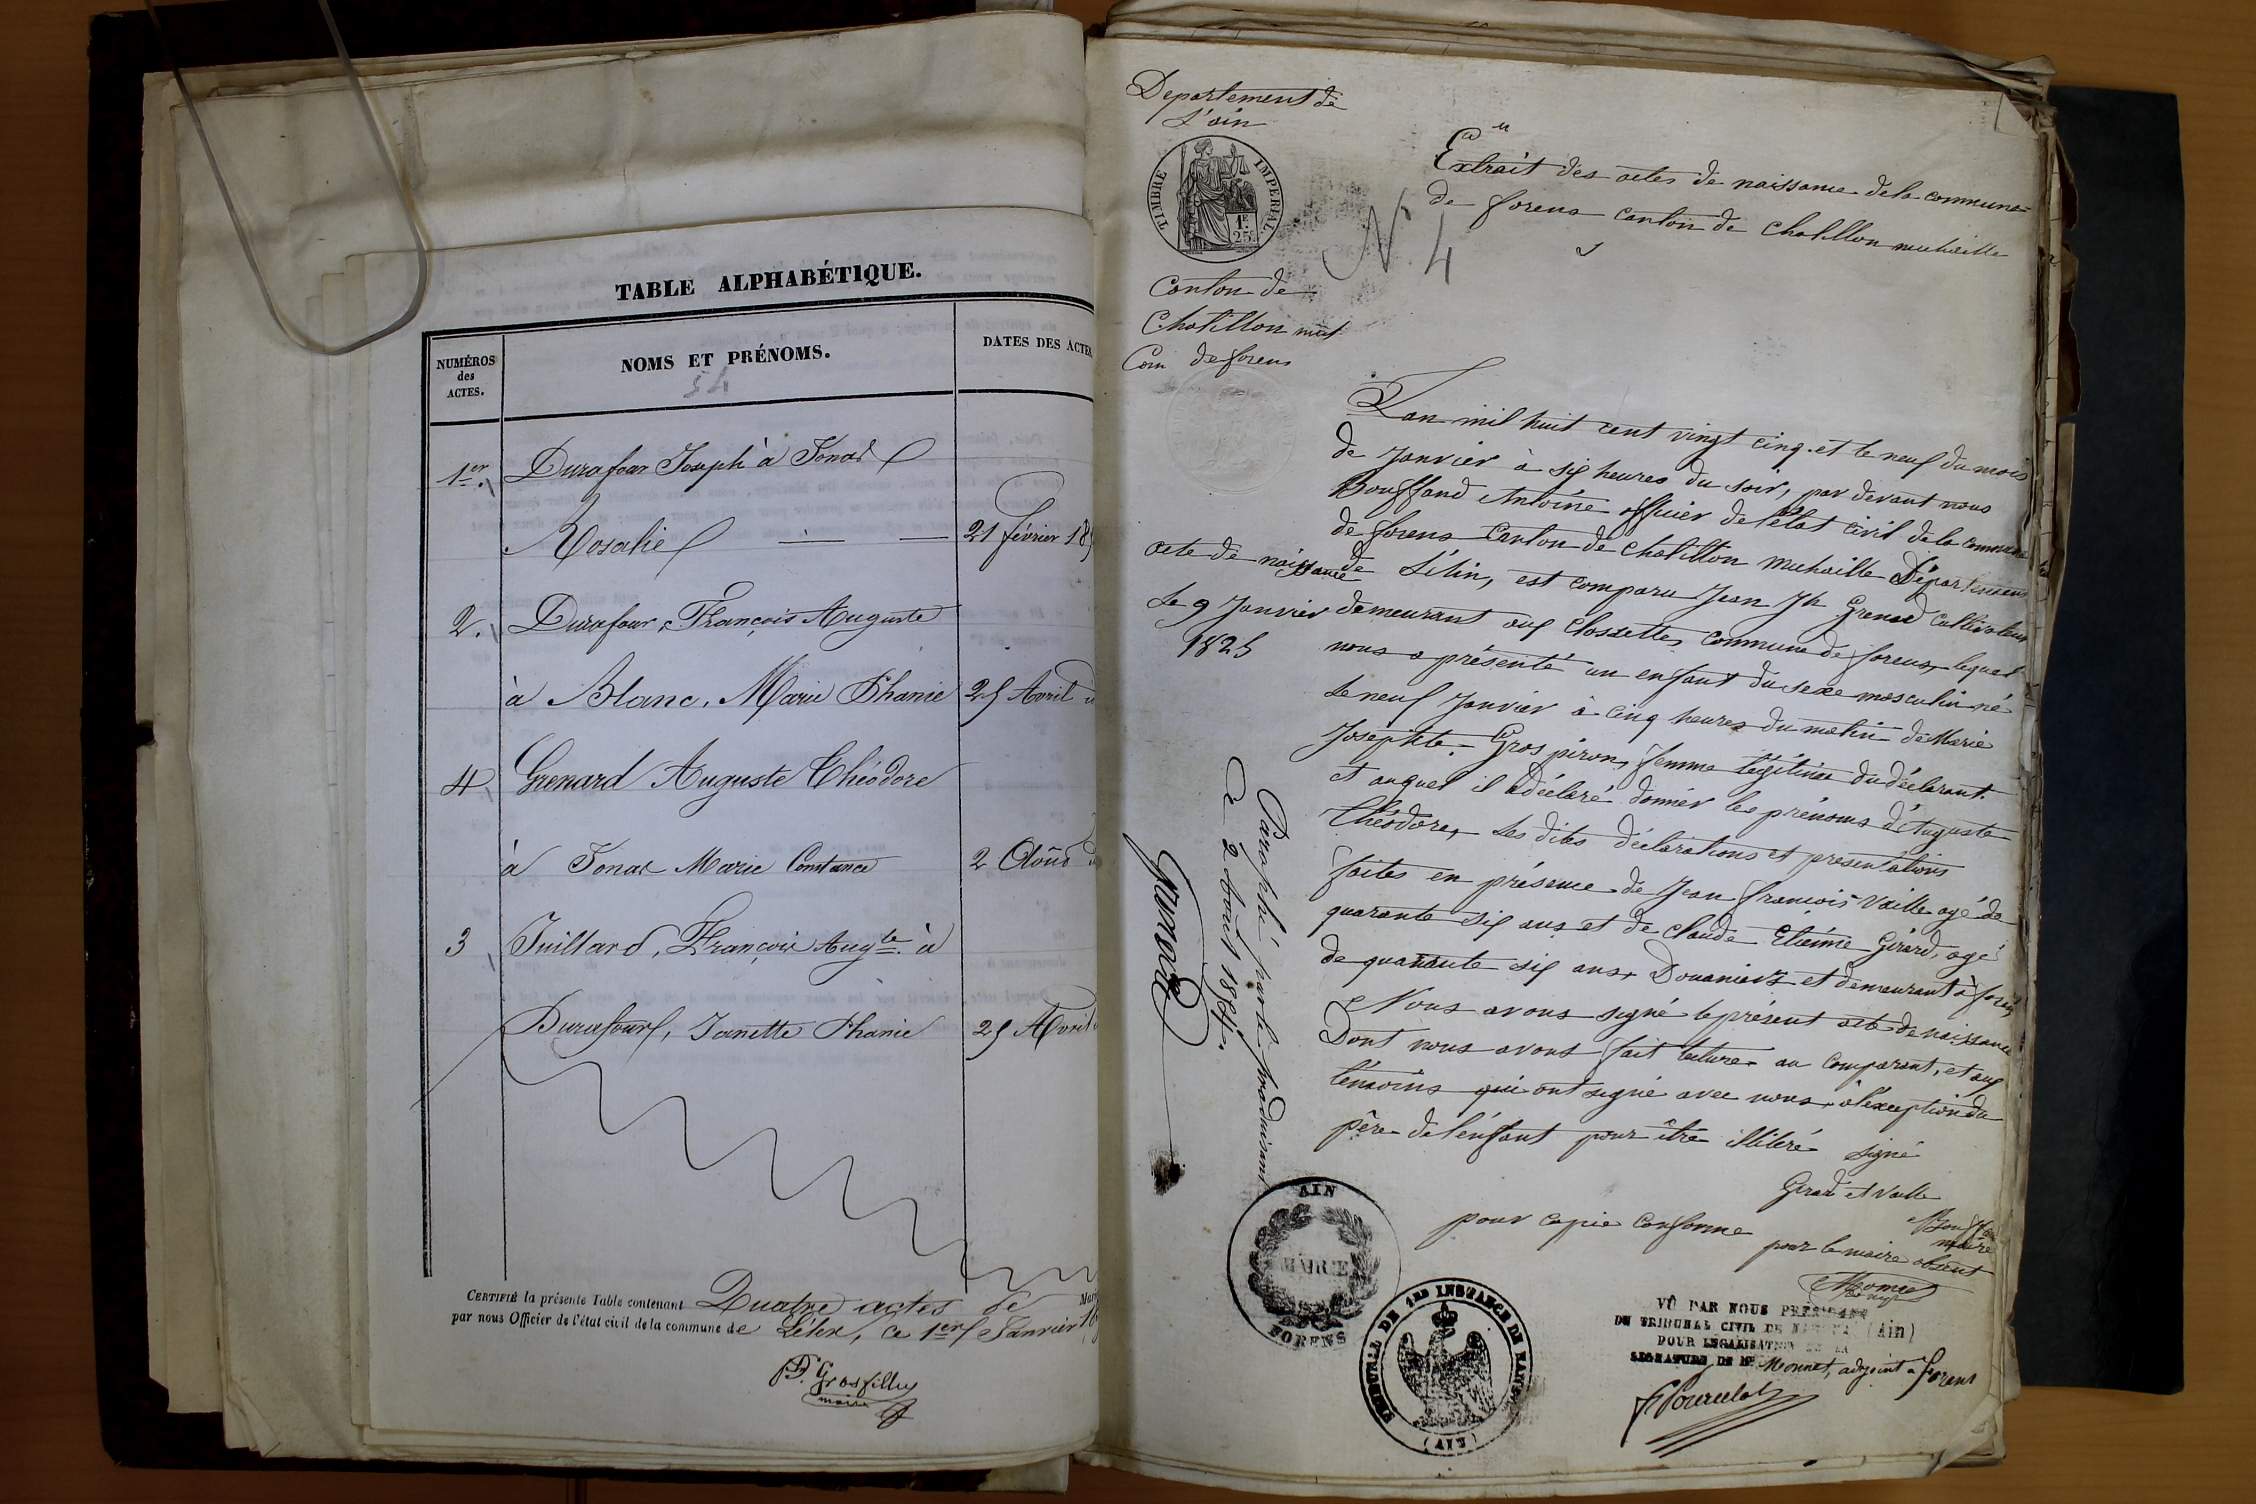 TABLE ALPHABÉTIQUE.
NUMÉROS
des
ACTES.
NOMS ET PRÉNOMS.
DATES DES ACTES
54
1er.
Durafour Joseph à Tonas
Rosalie
21 février 18
2.
Durafour, François Auguste
à Blanc, Marie Phanie
25 Avril
4
Grenard Auguste Théodore
à Tonas Marie Constance
2 Aôut
3
Juillard, François Augte. à
Durafour, Janette Phanie
25 Avril
CERTIFIÉ la présente Table contenant Quatre actes de
par nous Officier de l'état civil de la commune de Lélex, ce 1er Janvier 18
F. Grosfilley
maire
Departement de
L'ain
TIMBRE IMPERIAL
1F
25c
Canton de
Chatillon mich
Com de forens
N. 4
Extrait des actes de naissance de la commune
de forens canton de Chatillon michaille
L'an mil huit cent vingt cinq. et le neuf du mois
de Janvier à six heures du soir, par devant nous
Bouffand Antoine officier de l'état civil de la commune
de forens canton de Chatillon michaille Département
acte de naissance
de L'ain, est comparu Jean Jh Grenard cultivateur
Le 9 Janvier
1825
demeurant aux Clossettes commune de forens, lequel
nous a présenté un enfant du sexe masculin né
le neuf Janvier à cinq heures du matin de Marie
Josephte Gros piron, femme légitime du déclarant.
et auquel il a déclaré donner les prénoms d'Auguste
Théodore, les dites déclarations et présentations
faites en présence de Jean françois Vaille agé de
quarante six ans et de Claude Etienne Girard, agé
de quarante six ans, Douaniers et demeurant à forens
Nous avons signé le présent acte de naissance
Dont nous avons fait lecture au comparant, et aux
témoins qui ont signé avec nous, à l'exception du
père de l'enfant pour être illitéré signé
Girard et Vaille
Bouffand
maire
pour copie conforme
pour le maire absent
Monnet
Paraphé par le produisant
Ce 2 Août 1857.
Grenard
AIN
MAIRIE
FORENS
TRIBUNAL DE 1RE INSTANCE DE NANTUA
(AIN)
VU PAR NOUS PRÉSIDENT
DU TRIBUNAL CIVIL DE NANTUA (Ain)
POUR LÉGALISATION DE LA
SIGNATURE DE Mr Monnet, adjoint à Forens